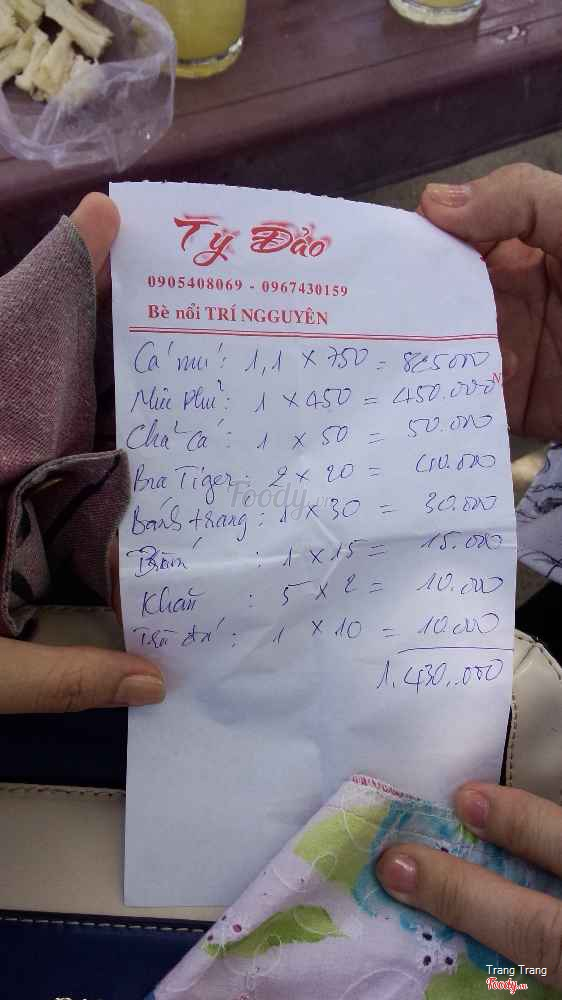 Tỷ Đảo
0905408069 - 0967430159
Bè nổi TRÍ NGGUYÊN
Cá mú: 1,1 x 750 = 825000
Mực : 1 x 450 = 450.000
Chả cá: 1 x 50 = 50.000
Bia Tiger: 2 x 20 = 40.000
Bánh trang: 1 x 30 = 30.000
: 1 x 15 = 15.000
Khăn : 5 x 2 = 10.000
Trà đá: 1 x 10 = 10.000
1.430.000
Foody.vn
Trang Trang
Foody.vn